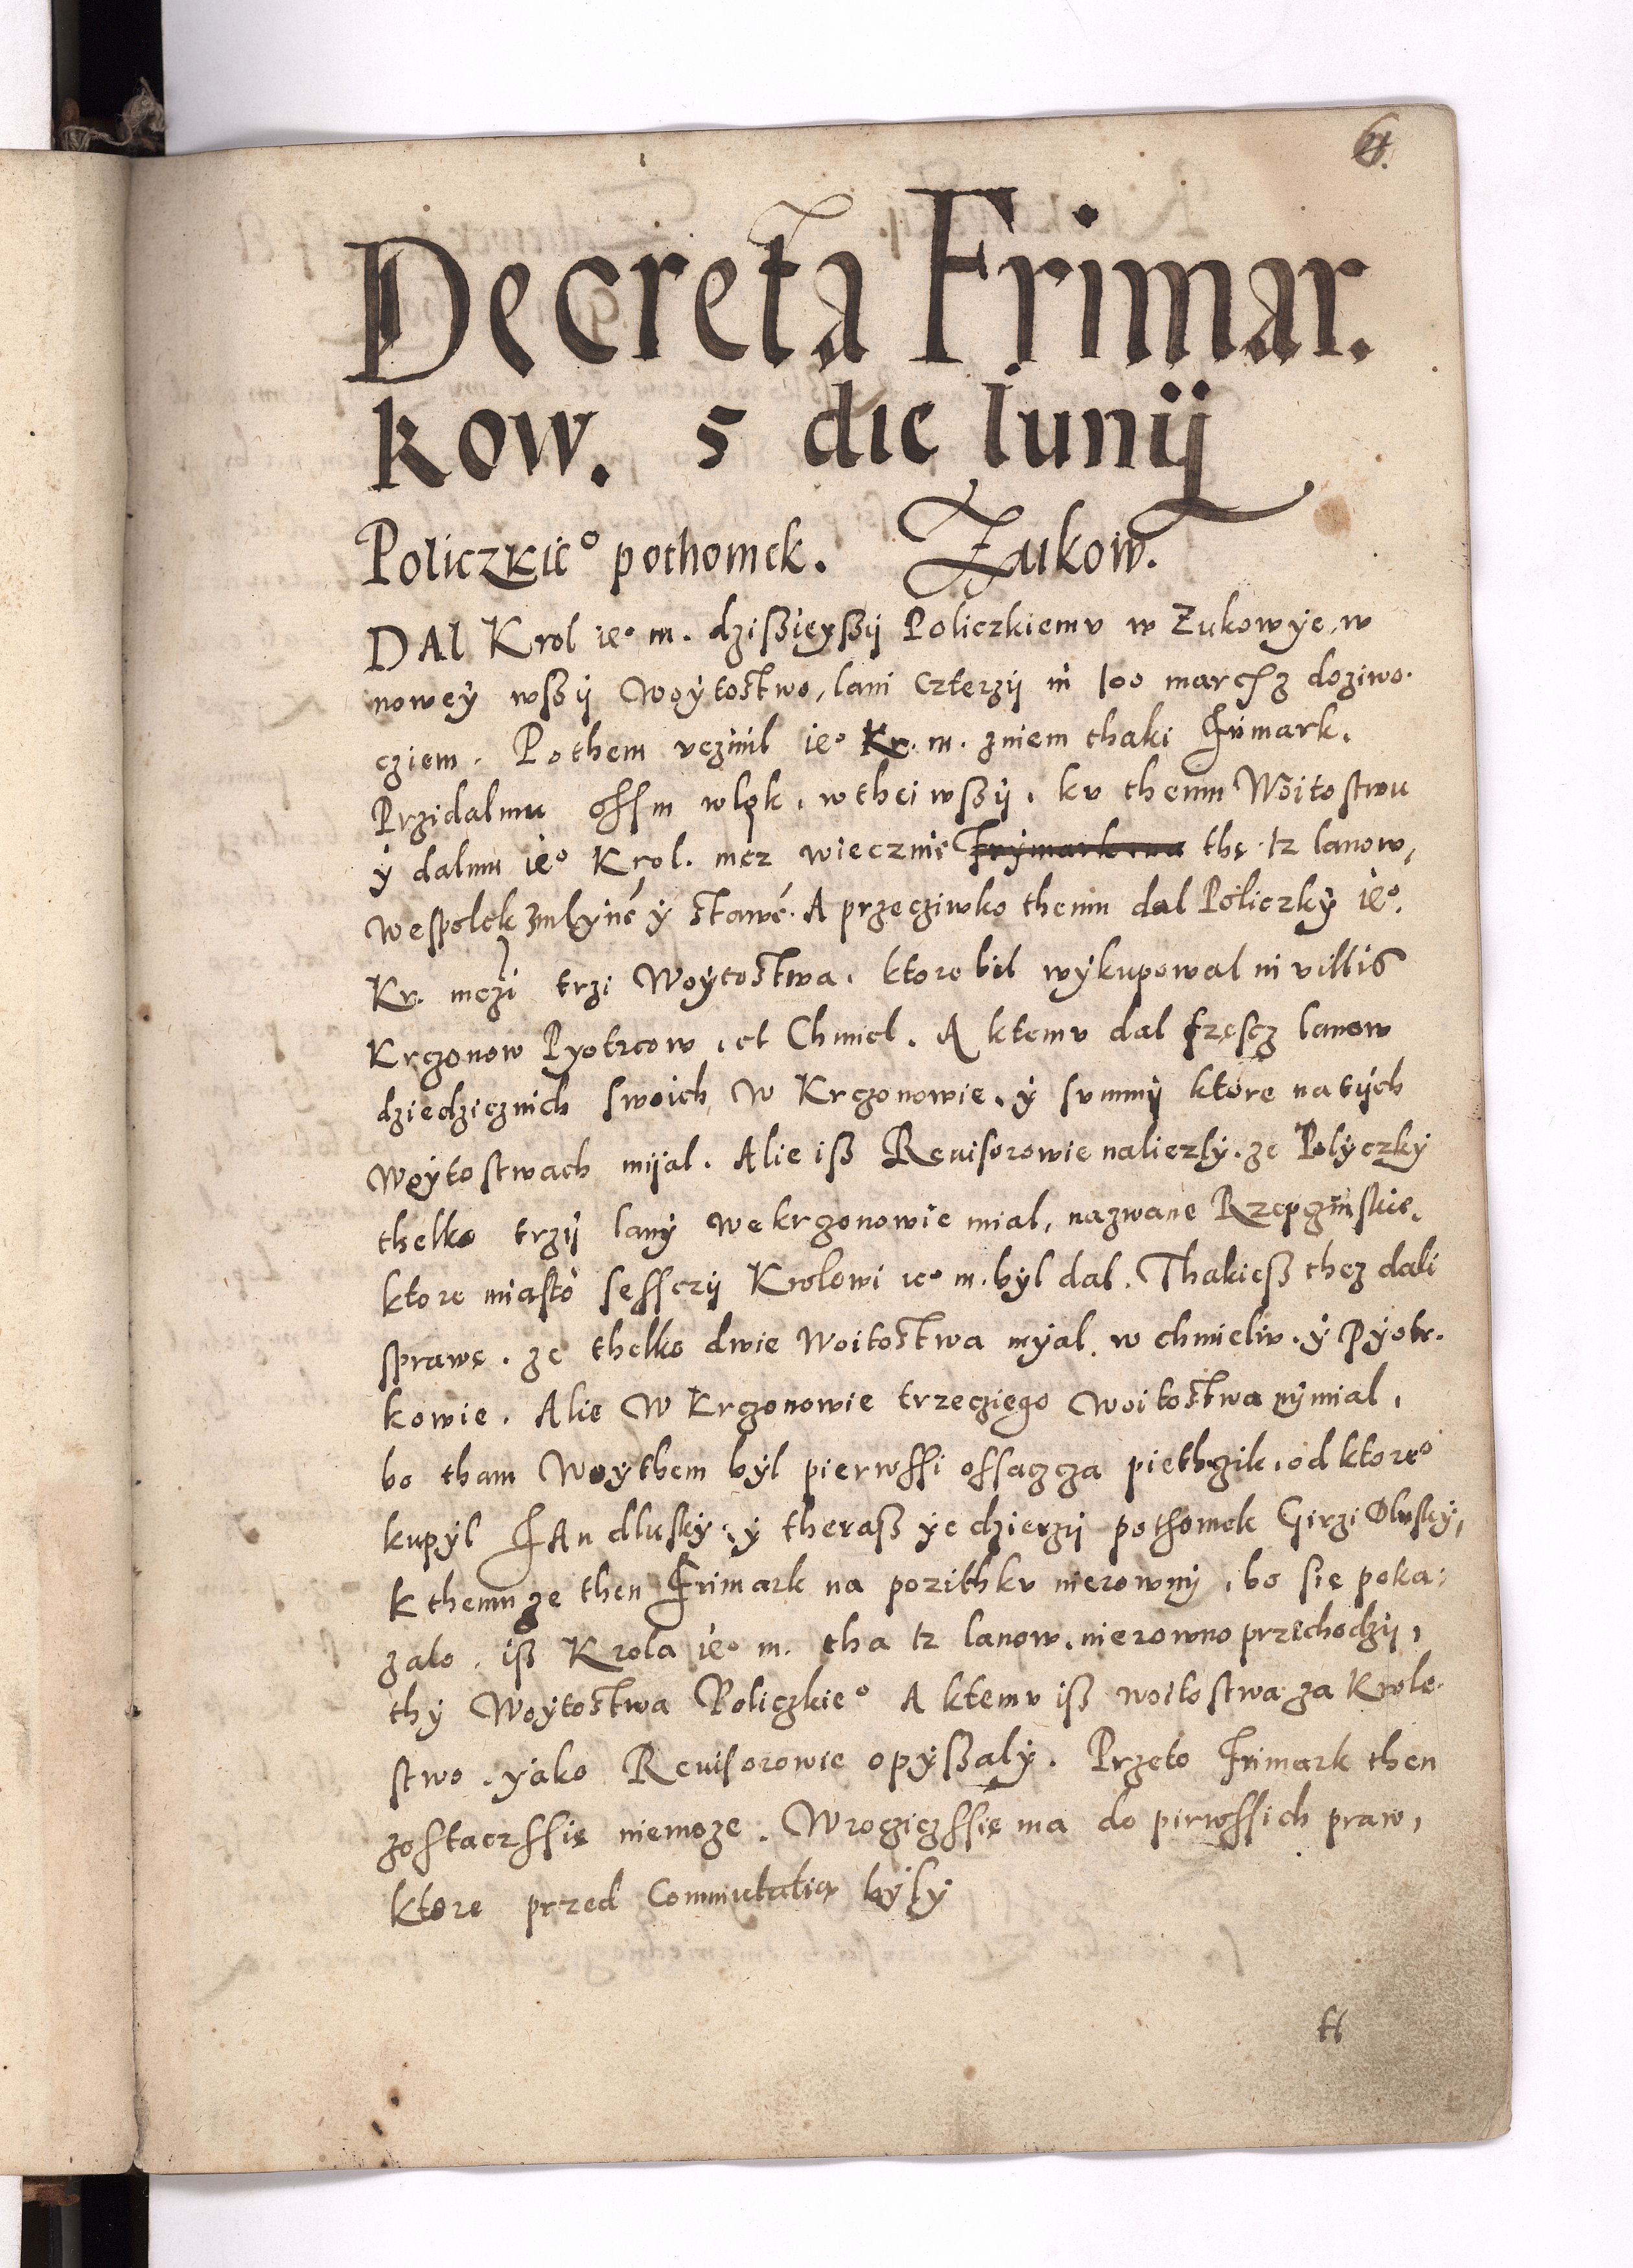 Decreta Frimar.
kow. 5 die Iunij
Policzkie° pothomek. Zukow.
DAl Krol ie° m. dzißieyßij Policzkiemv w Zukowÿe, w
nowey wßij Woÿtostwo, lani czterzij in 100 marchz doziwo.
cziem. Pothem vczinil ie° Kr. m. zniem thaki Frimark.
Przidalmu ossm wlok, wthei wßij, kv themu Woitostwu
ÿ dalmu ie° Krol. mcz wiecznie thę tz lanow,
wespolek zmlynē ÿ stawē. A przecziwko themu dal Policzkÿ ie°.
Kr. mczi trzi Woÿtostwa, ktore bil wÿkupowal in villis
Krczonow Pyotrcow, et Chmiel. A ktemv dal częscz lanow
dziedzicznich swoich W Krczonowie, ÿ summÿ ktore na tÿch
Woÿtostwach mijal. Alie iß Reuisorowie nalieźlÿ, ze Polÿczkÿ
thelko trzÿ lanÿ we krczonowie mial, nazwane Rzepczinskie,
ktore miasto sessczij Krolowi ie° m. bÿl dal. Thakieß thez dali
sprawę, ze thelko dwie Woitostwa mÿal, w chmieliv, ÿ Pÿotr.
kowie. Alie W Krczonowie trzecziego Woitostwa nÿmial,
bo tham Woÿthem bÿl pierwssi ossaczcza piethrzik, od ktore°
kupÿl JAn dluskÿ, ÿ theraß ÿe dzierzij pothomek Girzi Dluskÿ,
k themu ze then Frimark na pozithkv nierownÿ, bo się poka:
zalo, iß Krola ie° m. tha tz lanow, nierowno przechodzij,
thÿ Woÿtostwa Policzkie° A ktemv iß woitostwa za Krole
stwo, ÿako Reuisorowie opÿßalÿ. Przeto Frimark then
zostaczssię niemoze. Wrocziczssię ma do pirwssich praw,
ktore przed Commutatią bÿlÿ